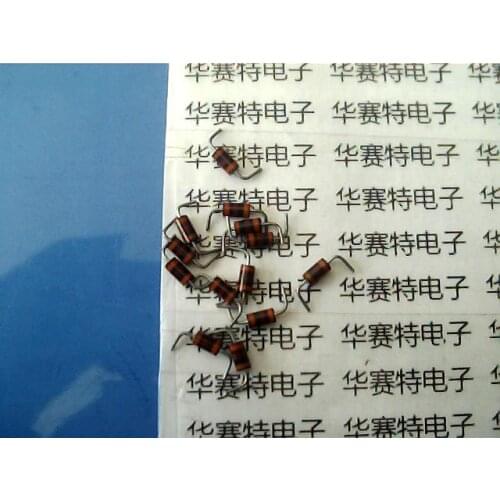 华赛特电子 华赛特电子 华
华赛特电子 华赛特电子 华
华赛特电子 华赛特电子 华
华赛特电子 华赛特电子 华
华赛特电子 华赛特电子 华
华赛特电子 华赛特电子
华赛特电子 华赛特电子
华赛特电子 华赛特电子
华赛特电子 华赛特电子